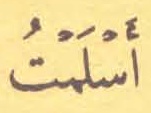 أَسْلَمْتُ